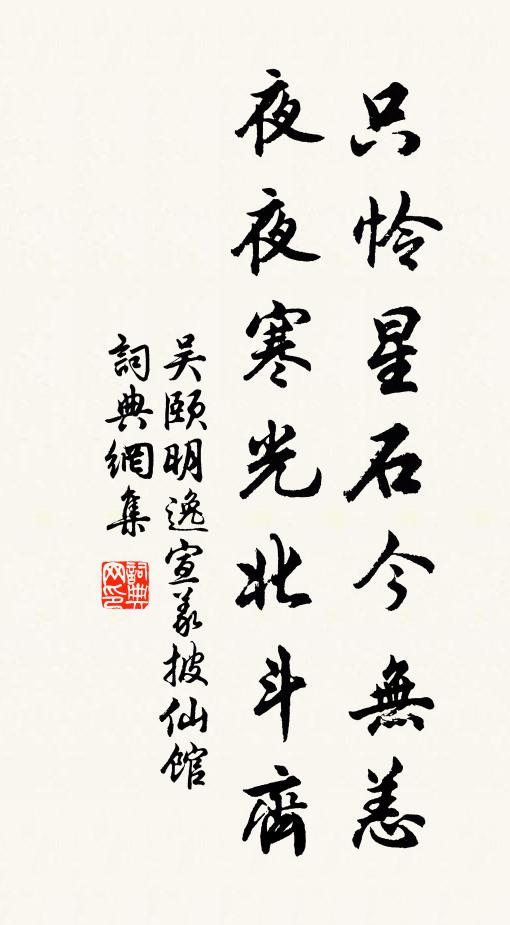 只怜星石今無恙
夜夜寒光北斗齊
吴颐明逸宣義披仙馆
詞典網集
詞典网印